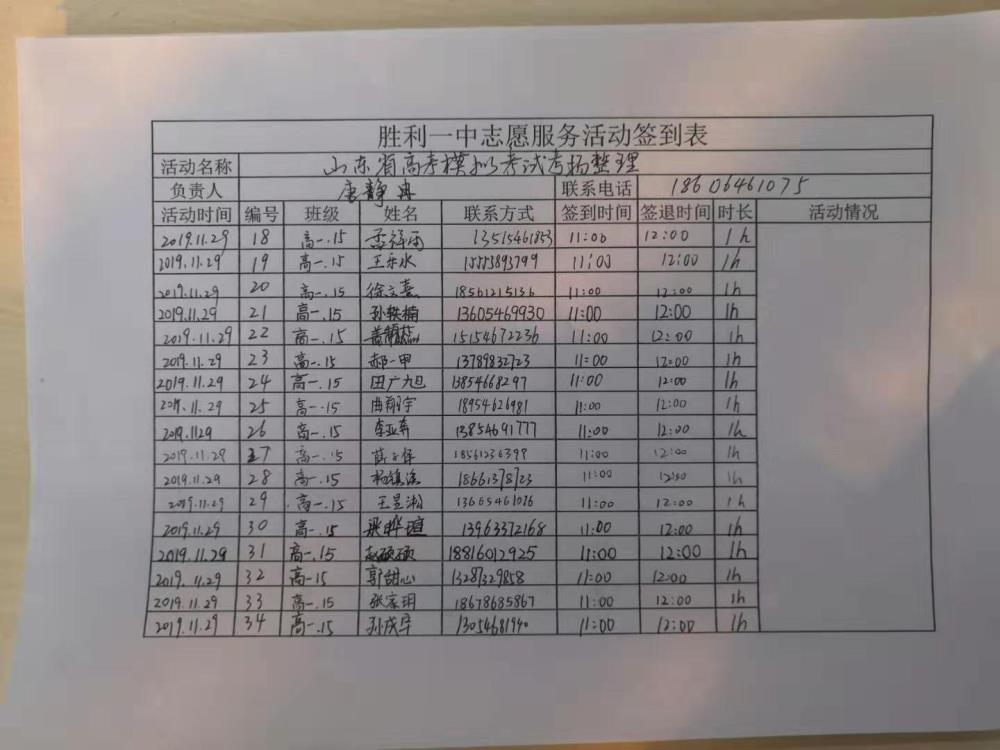 胜利一中志愿服务活动签到表
活动名称 山东省高考模拟考试考场整理
负责人 唐静冉 联系电话 18606461075
活动时间 编号 班级 姓名 联系方式 签到时间 签退时间 时长 活动情况
2019.11.29 18 高一.15 13515461853 11:00 12:00 1h
2019.11.29 19 高一.15 王乐水 15553893799 11:00 12:00 1h
2019.11.29 20 高一.15 徐文熹 18561215136 11:00 12:00 1h
2019.11.29 21 高一.15 孙轶楠 13605469930 11:00 12:00 1h
2019.11.29 22 高一.15 15154672236 11:00 12:00 1h
2019.11.29 23 高一.15 郝一甲 13789832723 11:00 12:00 1h
2019.11.29 24 高一.15 田广旭 13854668297 11:00 12:00 1h
2019.11.29 25 高一.15 曲翔宇 18954626981 11:00 12:00 1h
2019.1129 26 高一.15 李亚奔 13854691777 11:00 12:00 1h
2019.11.29 27 高一.15 18561236399 11:00 12:00 1h
2019.11.29 28 高一.15 杨镇泽 18661378723 11:00 12:00 1h
2019.11.29 29 高一.15 王昱瀚 11:00 12:00 1h
2019.11.29 30 高一.15 梁晔暄 13963372168 11:00 12:00 1h
2019.11.29 31 高一.15 赵硕硕 18816012925 11:00 12:00 1h
2019.11.29 32 高一15 郭甜心 13287329858 11:00 12:00 1h
2019.11.29 33 高一.15 张家玥 18678685867 11:00 12:00 1h
2019.11.29 34 高一.15 孙茂华 13054681940 11:00 12:00 1h